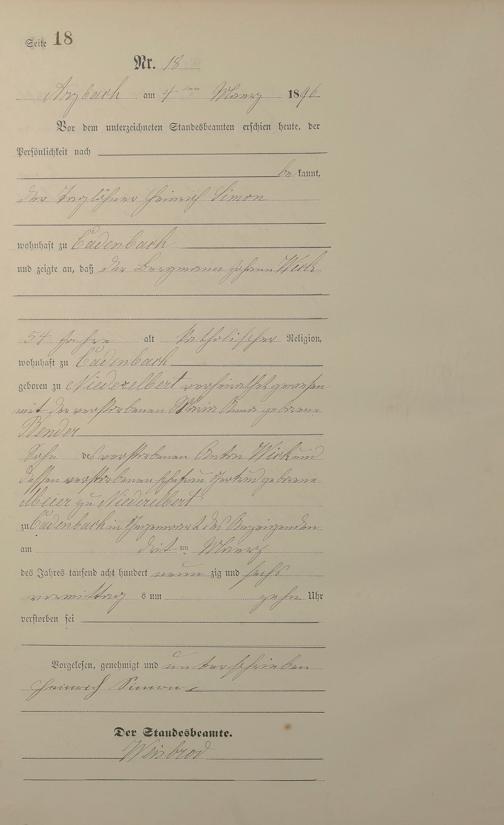 Seite 18
Nr. 18
Arzbach am 4ten Maerz 1896
Vor dem unterzeichneten Standesbeamten erschien heute, der
Persönlichkeit nach
be kannt,
der Taglöhner Heinrich Simon
wohnhaft zu Cadenbach
und zeigte an, daß der Bergmann Johann Wick
54 Jahre alt katholischer Religion,
wohnhaft zu Cadenbach
geboren zu Niederelbert verheirathet gewesen
mit der verstorbenen geborene
Bender
Sohn des verstorbenen Anton Wick und
dessen verstorbenen Ehefrau Gertrud geborene
Meier zu Niederelbert
zu Cadenbach in Gegenwart des Anzeigenden
am dritten Maerz
des Jahres tausend acht hundert neun zig und sechs
vormittag s um zehn Uhr
verstorben sei
Vorgelesen, genehmigt und unterschrieben
Heinrich Simon
Der Standesbeamte.
Weisbrod